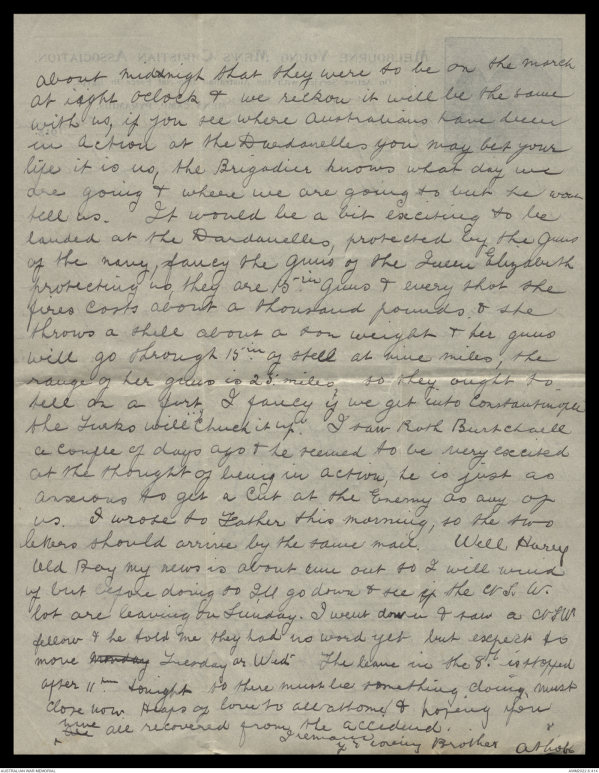 MELBOURNE YOUNG MEN'S CHRISTIAN ASSOCIATION.
about midnight that they were to be on the march
at eight oclock & we reckon it will be the same
with us, if you see where Australians have been
in action at the Dardanelles you may bet your
life it is us, the Brigadier knows what day we
are going & where we are going to but he wont
tell us. It would be a bit exciting to be
landed at the Dardanelles, protected by the Guns
of the navy, fancy the guns of the Queen Elizabeth
protecting us, they are 15 in Guns & every shot she
fires costs about a thousand pounds & she
throws a shell about a ton weight & her guns
will go through 15 in of steel at nine miles, the
range of her guns is 25 miles, so they ought to
tell on a fort, I fancy if we get into Constantinople
the Turks will "Chuck it up". I saw Roth Burtchaell
a couple of days ago & he seemed to be very excited
at the thought of being in action, he is just as
anxious to get a cut at the Enemy as any of
us. I wrote to Father this morning, so the two
letters should arrive by the same mail. Well Harry
Old Boy my news is about run out so I will wind
up but before doing so Ill go down & see if the N.S.W.
lot are leaving on Sunday. I went down & saw a NSW
fellow & he told me they had no word yet but expect to
move Monday Tuesday or Wed. The leave in the 8th is stopped
after 11 pm tonight so there must be something doing, must
close now Heaps of love to all at home & hoping you
have all recovered from the accident.
I remain
Yr loving Brother